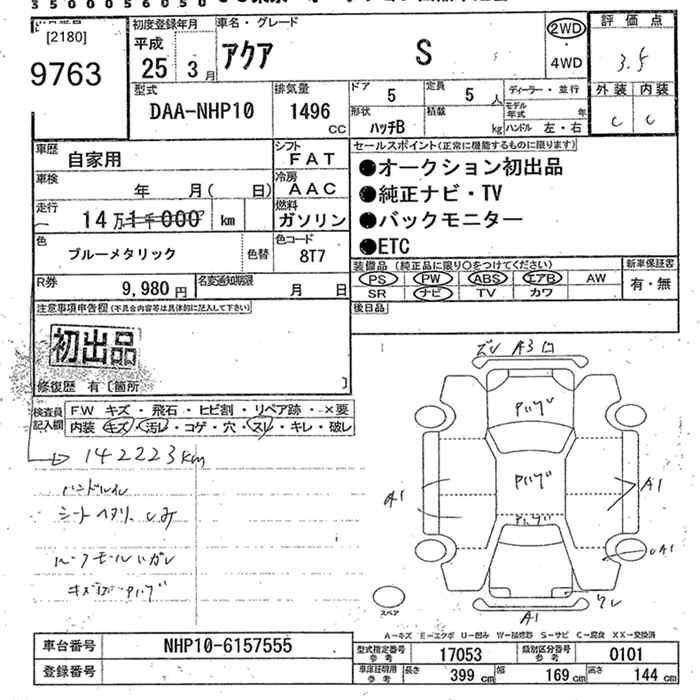 3500056050
[2180]
9763
初度登録年月
平成
25年3月
車名・グレード
アクア S
2WD
・
4WD
評価点
3.5
外装 内装
C C
型式
DAA-NHP10
排気量
1496
CC
ドア
5
定員
5人
形状
ハッチB
積載
kg
ディーラー・並行
モデル年式 年
ハンドル 左・右
車歴
自家用
シフト
FAT
車検
年 月( 日)
冷房
AAC
走行
14万1千000 km
燃料
ガソリン
色
ブルーメタリック
色替
色コード
8T7
セールスポイント(正常に機能するものに限ります)
●オークション初出品
●純正ナビ・TV
●バックモニター
●ETC
装備品(純正品に限り○をつけてください)
PS PW ABS エアB AW
SR ナビ TV カワ
新車保証書
有・無
R券
9,980円
名変通知期限
月 日
後日品
注意事項申告欄(不具合内容等は具体的に記入して下さい)
初出品
修復歴 有〔箇所 〕
検査員記入欄
FW キズ・飛石・ヒビ割・リペア跡・×要
内装 キズ・汚レ・コゲ・穴・スレ・キレ・破レ
142223km
ハンドルスレ
シートヘタリ、シミ
ルーフモールハガレ
ズレ A3
A1
A1
A1
スペア
A-キズ E-エクボ U-凹み W-補修跡 S-サビ C-腐食 XX-交換済
車台番号
NHP10-6157555
登録番号
型式指定番号
参考
17053
類別区分番号
参考
0101
車庫証明用
参考
長さ 399cm
幅 169cm
高さ 144cm